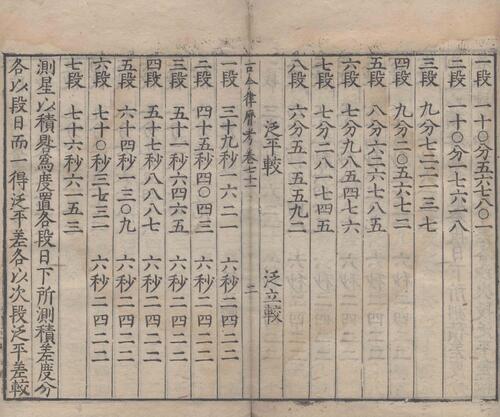 一段 一十〇分五六七八〇一
二段 一十〇分一七六一八
三段 九分七二二一三七
四段 九分二〇五六七二
五段 八分六二六七八五
六段 七分九八五四七六
七段 七分二八一七四五
八段 六分五一五五九二
泛平較 泛立較
古今律曆考卷七十一 二
一段 三十九秒一六二一 六秒二四二二
二段 四十五秒四〇四三 六秒二四二二
三段 五十一秒六四六五 六秒二四二二
四段 五十七秒八八八七 六秒二四二二
五段 六十四秒一三〇九 六秒二四二二
六段 七十〇秒三七三一 六秒二四二二
七段 七十六秒六一五三
測星以積爲度置各段日下所測積差度分
各以段日而一得泛平差各以次段泛平差較